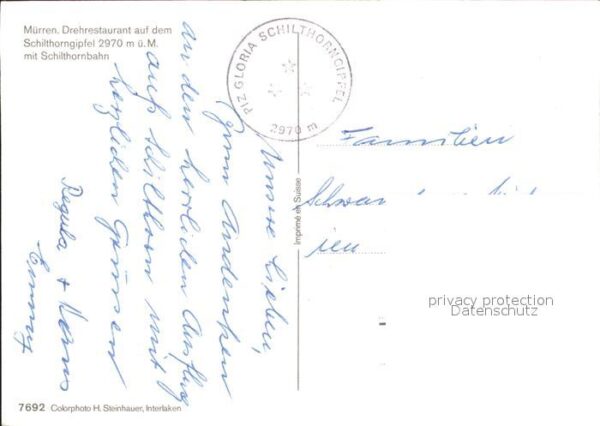 Mürren. Drehrestaurant auf dem
Schilthorngipfel 2970 m ü. M.
mit Schilthornbahn
PIZ GLORIA SCHILTHORNGIPFEL
2970 m
Unsere Lieben,
Zum Andenken
an den herrlichen Ausflug
aufs Schilthorn mit
herzlichen Grüssen
Regula +
Familien
Imprimé en Suisse
privacy protection
Datenschutz
7692 Colorphoto H. Steinhauer, Interlaken